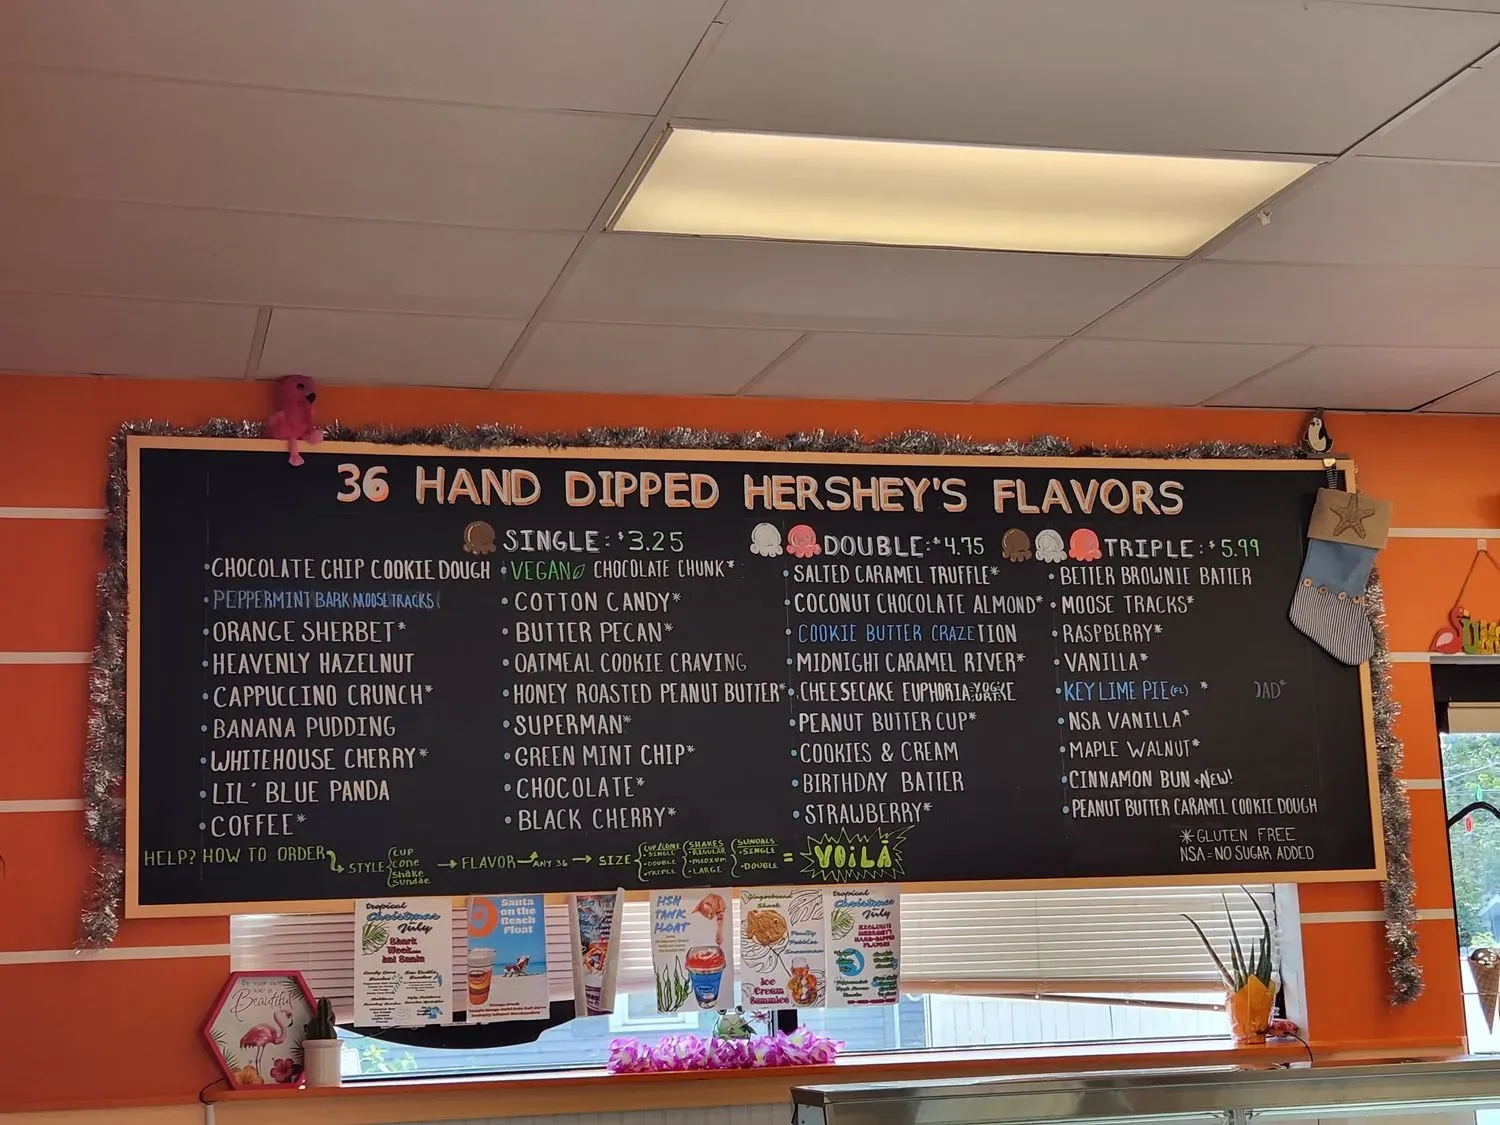 36 HAND DIPPED HERSHEY'S FLAVORS
SINGLE: $3.25
DOUBLE: $4.75
TRIPLE: $5.99
• CHOCOLATE CHIP COOKIE DOUGH
• PEPPERMINT BARK MOOSE TRACKS
• ORANGE SHERBET*
• HEAVENLY HAZELNUT
• CAPPUCCINO CRUNCH*
• BANANA PUDDING
• WHITEHOUSE CHERRY*
• LIL' BLUE PANDA
• COFFEE*
• VEGAN CHOCOLATE CHUNK*
• COTTON CANDY*
• BUTTER PECAN*
• OATMEAL COOKIE CRAVING
• HONEY ROASTED PEANUT BUTTER*
• SUPERMAN*
• GREEN MINT CHIP*
• CHOCOLATE*
• BLACK CHERRY*
• SALTED CARAMEL TRUFFLE*
• COCONUT CHOCOLATE ALMOND*
• COOKIE BUTTER CRAZETION
• MIDNIGHT CARAMEL RIVER*
• CHEESECAKE EUPHORIA
• PEANUT BUTTER CUP*
• COOKIES & CREAM
• BIRTHDAY BATTER
• STRAWBERRY*
• BETTER BROWNIE BATTER
• MOOSE TRACKS*
• RASPBERRY*
• VANILLA*
• KEY LIME PIE (FL) *
• NSA VANILLA*
• MAPLE WALNUT*
• CINNAMON BUN *NEW!
• PEANUT BUTTER CARAMEL COOKIE DOUGH
* GLUTEN FREE
NSA = NO SUGAR ADDED
HELP? HOW TO ORDER
STYLE
CUP
cone
Shake
Sundae
→ FLAVOR → ANY 36 → SIZE
CUP/CONE
• SINGLE
• DOUBLE
• TRIPLE
SHAKES
• REGULAR
• MEDIUM
• LARGE
SUNDAES
• SINGLE
• DOUBLE
= VOiLÀ
tropical
Christmas
in
July
Shark
Week...
Santa
on the
Beach
Float
HSN
TANK
FLOAT
Gingerbread
Shark
Ice
Cream
Gummies
tropical
Christmas
in
July
EXCLUSIVE
HERSHEY'S
HAND-DIPPED
FLAVORS
Beautiful